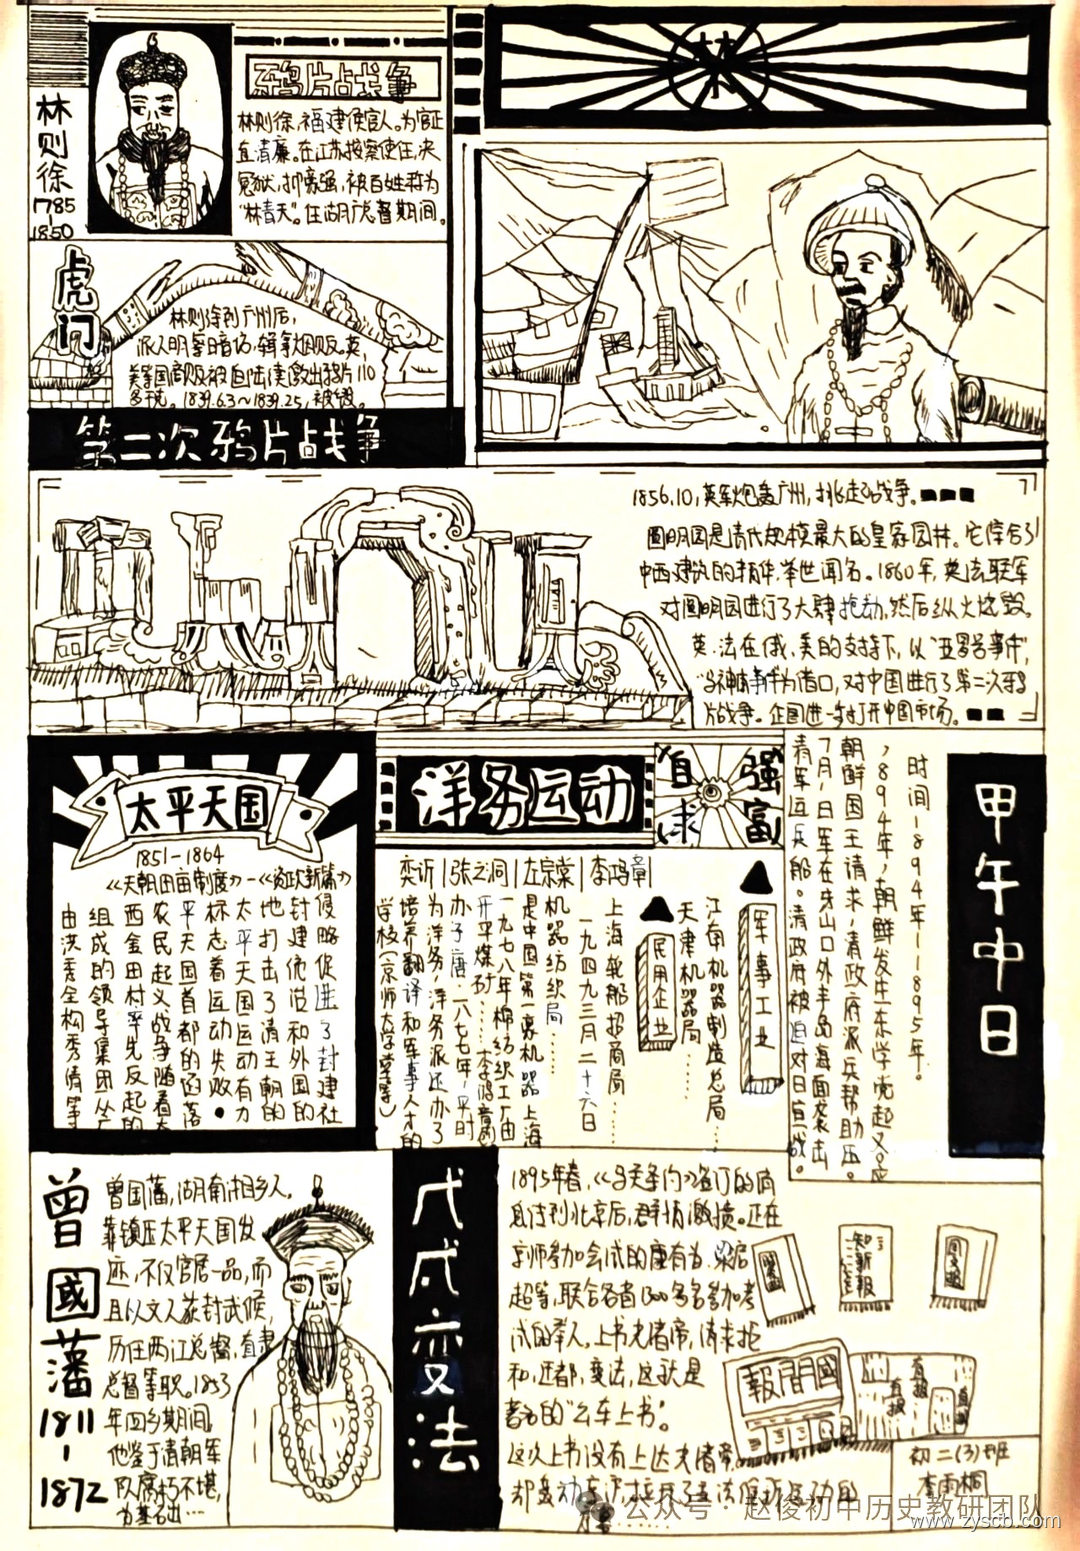 林则徐
1785
-
1850
鸦片战争
林则徐,福建侯官人。为官正
直清廉。在江苏按察使任,决
冤狱,抑豪强,被百姓称为
“林青天”。任湖广总督期间.
林
虎门
林则徐到广州后,
派人明察暗访,缉拿烟贩。英、
美等国商贩被迫陆续缴出鸦片110
多万。1839.6.3~1839.25,被毁。
第二次鸦片战争
1856.10,英军炮轰广州,挑起战争。
圆明园是清代规模最大的皇家园林。它综合了
中西建筑的精华,举世闻名。1860年,英法联军
对圆明园进行了大肆抢劫,然后纵火烧毁。
英、法在俄、美的支持下,以“亚罗号事件”,
“马神甫事件”为借口,对中国进行了第二次鸦
片战争。企图进一步打开中国市场。
太平天国
1851-1864
《天朝田亩制度》-《资政新篇》
由洪秀全构秀清等
组成的领导集团从广
西金田村率先反起的
农民起义战争随着太
平天国首都的陷落
标志着运动失败。
太平天国运动有力
地打击了清王朝的
封建统治和外国的
侵略促进了封建社
洋务运动
自强
求富
奕䜣|张之洞|左宗棠|李鸿章|
军事工业
江南机器制造总局…
天津机器局……
民用企业
上海轮船招商局……
一九四九三月二十六日
机器纺织局……
是中国第一家机器上海
一九七八年棉纺织工厂由
开平煤矿……李鸿章
办于唐.一八七七年,平时
为洋务,洋务派还办了
培养翻译和军事人才的
学校(京师大学堂等)
甲午中日
时间-1894年-1895年。
,1894年,朝鲜发生东学党起义。应
朝鲜国王请求,清政府派兵帮助压。
7月,日军在牙山口外丰岛海面袭击
清军运兵船。清政府被迫对日宣战。
曾國藩
1811
-
1872
曾国藩,湖南湘乡人,
靠镇压太平天国发
迹,不仅官居一品,而
且以文人获封武候,
历任两江总督,直隶
总督等职。1853
年回乡期间,
他鉴于清朝军
队腐朽不堪,
为基石出…
戊戌变法
1895年春,《马关条约》签订的消
息传到北京后,群情激愤。正在
京师参加会试的康有为、梁启
超等,联合各省1300多名参加考
试的举人,上书光绪帝,请求拒
和,迁都,变法,这就是
著名的“公车上书”。
这次上书没有上达光绪帝,
知新報
國聞報
初二(3)班
李雨桐
公众号·赵俊初中历史教研团队
www.zyscb.com